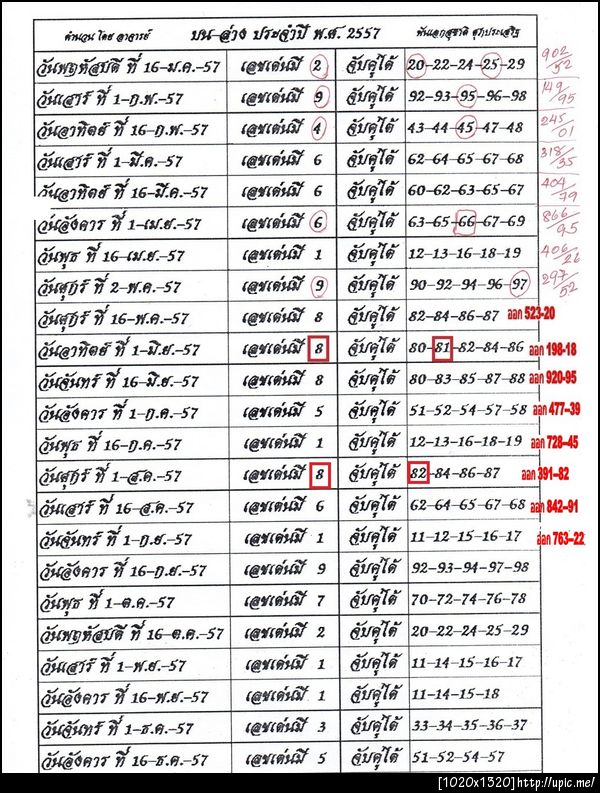 คำนวน โดย อาจารย์ บน-ล่าง ประจำปี พ.ศ. 2557 พันเอกสุชาติ สุภประเสริฐ
วันพฤหัสบดี ที่ 16-ม.ค.-57 เลขเด่นมี 2 จับคู่ได้ 20-22-24-25-29 902/52
วันเสาร์ ที่ 1-ก.พ.-57 เลขเด่นมี 9 จับคู่ได้ 92-93-95-96-98 149/95
วันอาทิตย์ ที่ 16-ก.พ.-57 เลขเด่นมี 4 จับคู่ได้ 43-44-45-47-48 245/01
วันเสาร์ ที่ 1-มี.ค.-57 เลขเด่นมี 6 จับคู่ได้ 62-64-65-67-68 318/35
วันอาทิตย์ ที่ 16-มี.ค.-57 เลขเด่นมี 6 จับคู่ได้ 60-62-63-65-67 404/79
วันอังคาร ที่ 1-เม.ย.-57 เลขเด่นมี 6 จับคู่ได้ 63-65-66-67-69 866/95
วันพุธ ที่ 16-เม.ย.-57 เลขเด่นมี 1 จับคู่ได้ 12-13-16-18-19 406/26
วันศุกร์ ที่ 2-พ.ค.-57 เลขเด่นมี 9 จับคู่ได้ 90-92-94-96-97 297/52
วันศุกร์ ที่ 16-พ.ค.-57 เลขเด่นมี 8 จับคู่ได้ 82-84-86-87 ออก 523-20
วันอาทิตย์ ที่ 1-มิ.ย.-57 เลขเด่นมี 8 จับคู่ได้ 80-81-82-84-86 ออก 198-18
วันจันทร์ ที่ 16-มิ.ย.-57 เลขเด่นมี 8 จับคู่ได้ 80-83-85-87-88 ออก 920-95
วันอังคาร ที่ 1-ก.ค.-57 เลขเด่นมี 5 จับคู่ได้ 51-52-54-57-58 ออก 477-39
วันพุธ ที่ 16-ก.ค.-57 เลขเด่นมี 1 จับคู่ได้ 12-13-16-18-19 ออก 728-45
วันศุกร์ ที่ 1-ส.ค.-57 เลขเด่นมี 8 จับคู่ได้ 82-84-86-87 ออก 391-82
วันเสาร์ ที่ 16-ส.ค.-57 เลขเด่นมี 6 จับคู่ได้ 62-64-65-67-68 ออก 842-91
วันจันทร์ ที่ 1-ก.ย.-57 เลขเด่นมี 1 จับคู่ได้ 11-12-15-16-17 ออก 763-22
วันอังคาร ที่ 16-ก.ย.-57 เลขเด่นมี 9 จับคู่ได้ 92-93-94-97-98
วันพุธ ที่ 1-ต.ค.-57 เลขเด่นมี 7 จับคู่ได้ 70-72-74-76-78
วันพฤหัสบดี ที่ 16-ต.ค.-57 เลขเด่นมี 2 จับคู่ได้ 20-22-24-25-29
วันเสาร์ ที่ 1-พ.ย.-57 เลขเด่นมี 1 จับคู่ได้ 11-14-15-16-17
วันอังคาร ที่ 16-พ.ย.-57 เลขเด่นมี 1 จับคู่ได้ 11-14-15-18
วันจันทร์ ที่ 1-ธ.ค.-57 เลขเด่นมี 3 จับคู่ได้ 33-34-35-36-37
วันอังคาร ที่ 16-ธ.ค.-57 เลขเด่นมี 5 จับคู่ได้ 51-52-54-57
[1020x1320]http://upic.me/